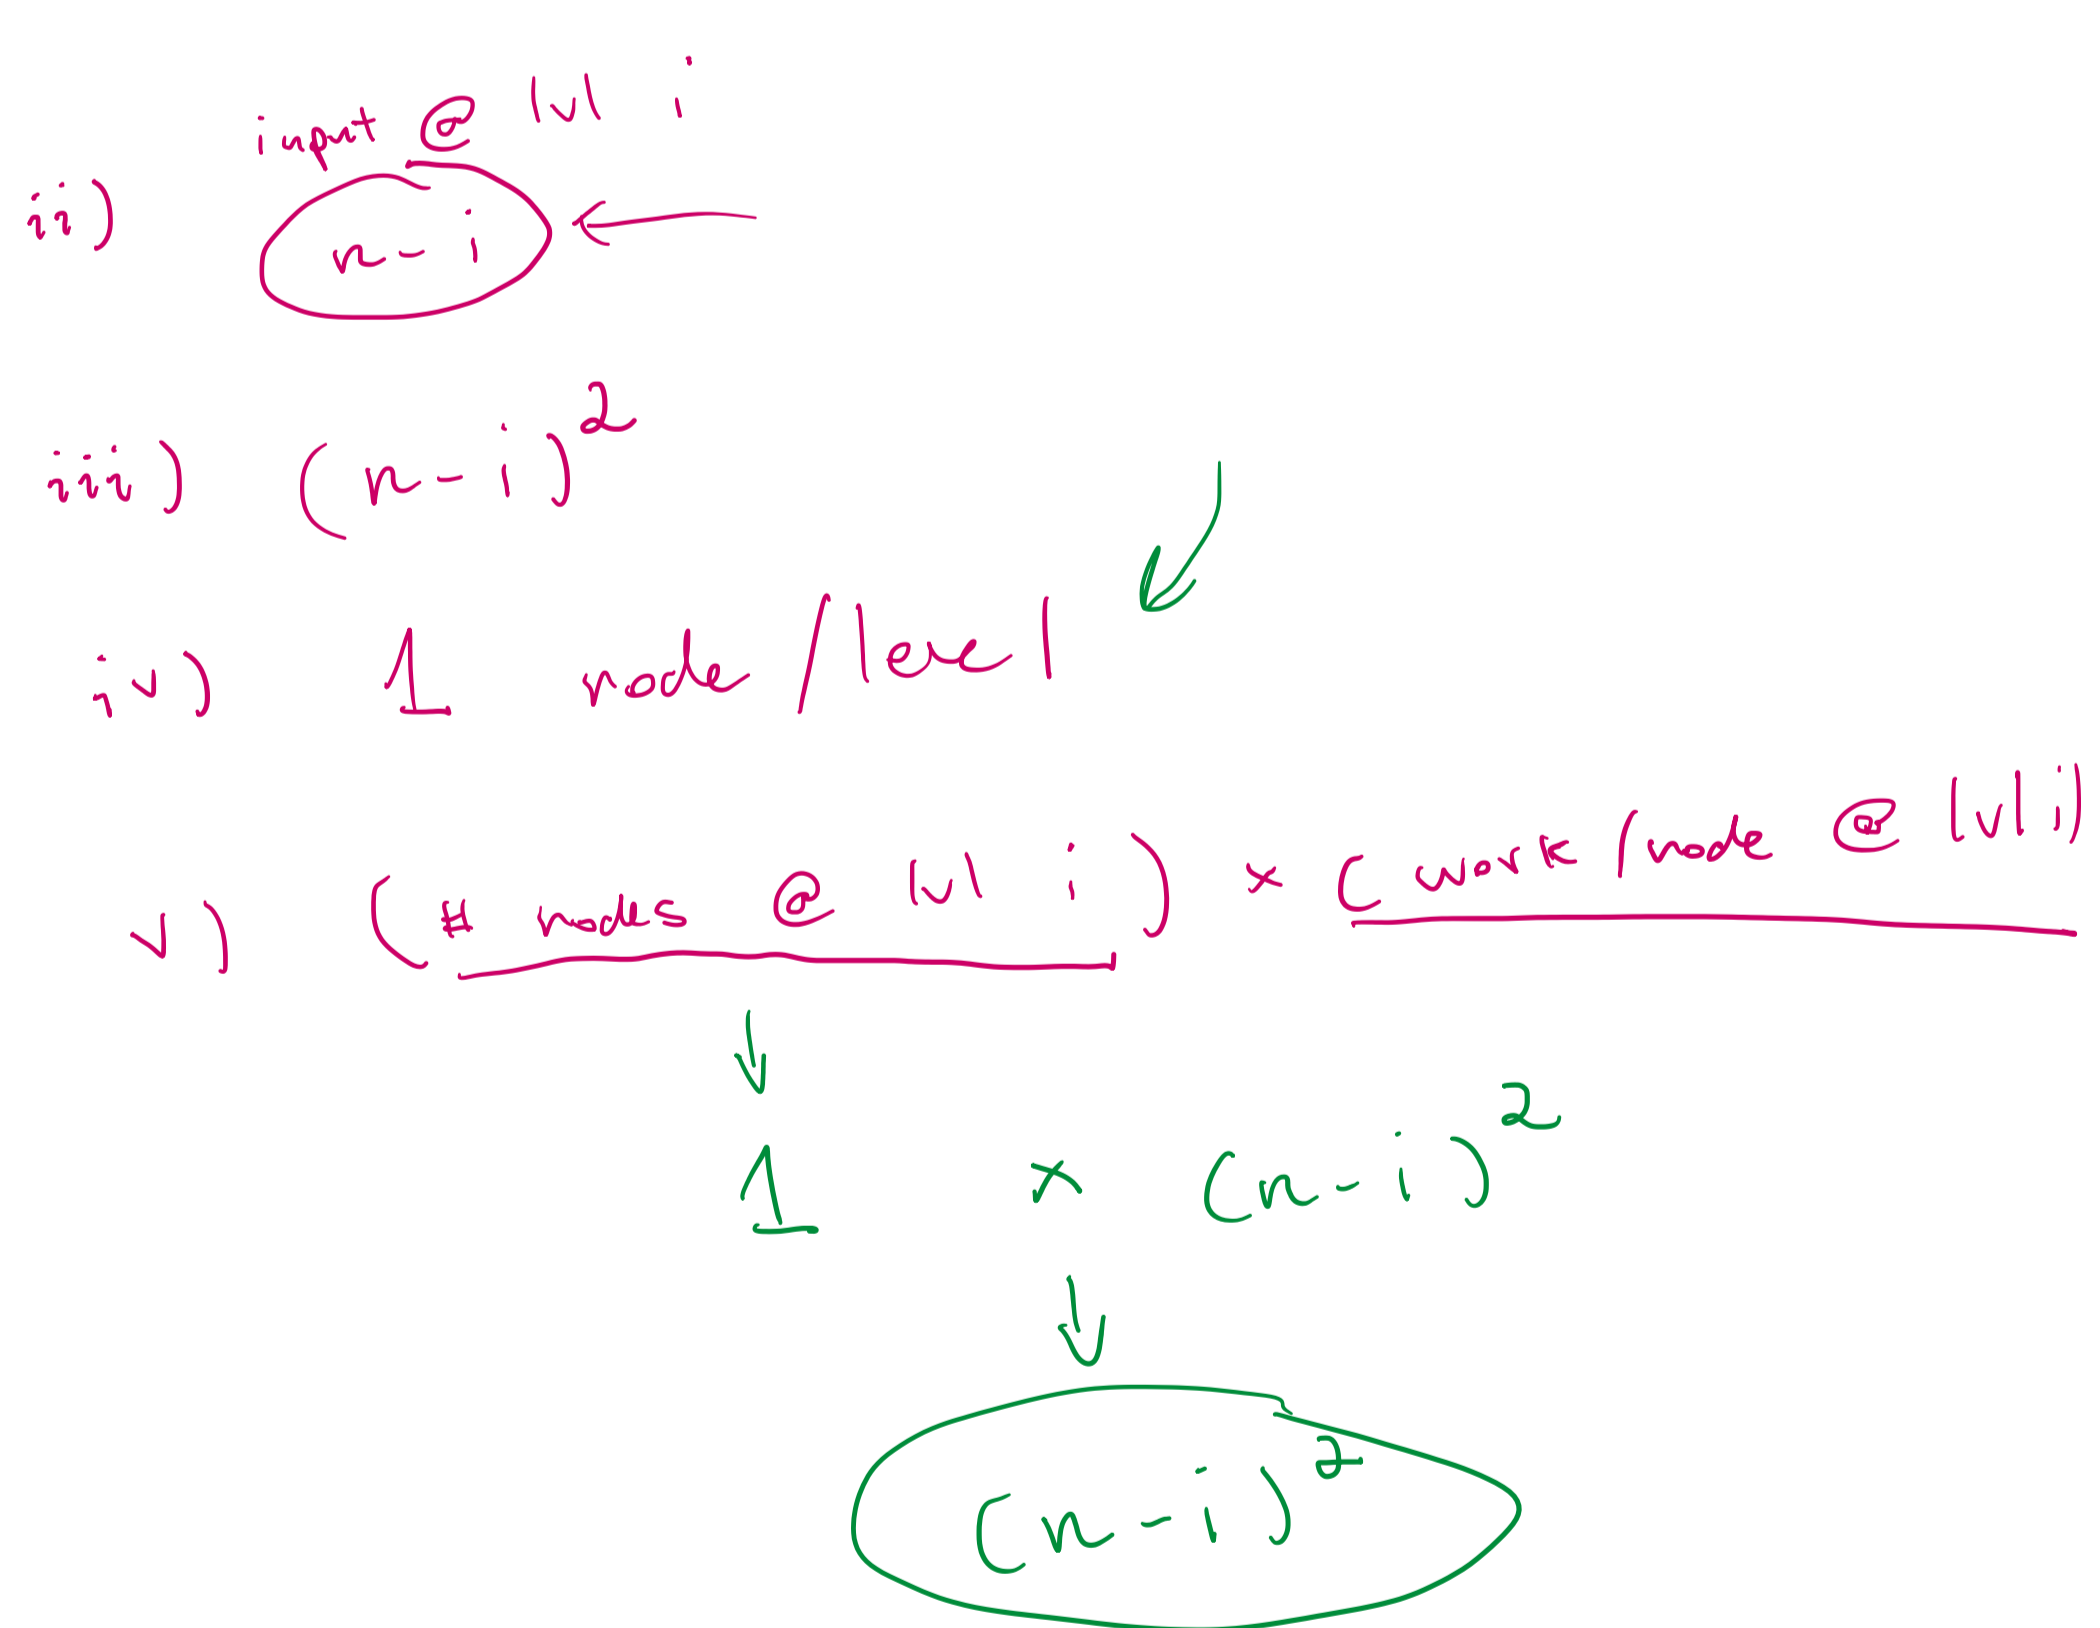 input @ lvl i
ii) n - i
iii) (n - i)²
iv) 1 node / level
v) (# nodes @ lvl i) * (work / node @ lvl i)
1 × (n - i)²
(n - i)²